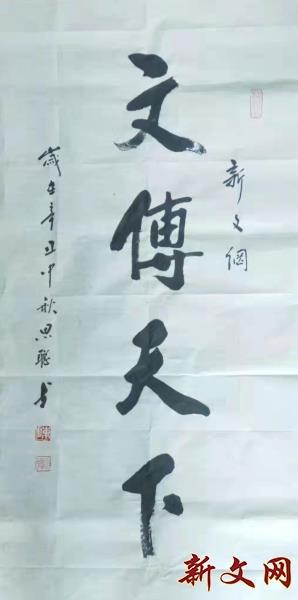 新文網
文傳天下
歲在辛丑中秋思聰书
新文网